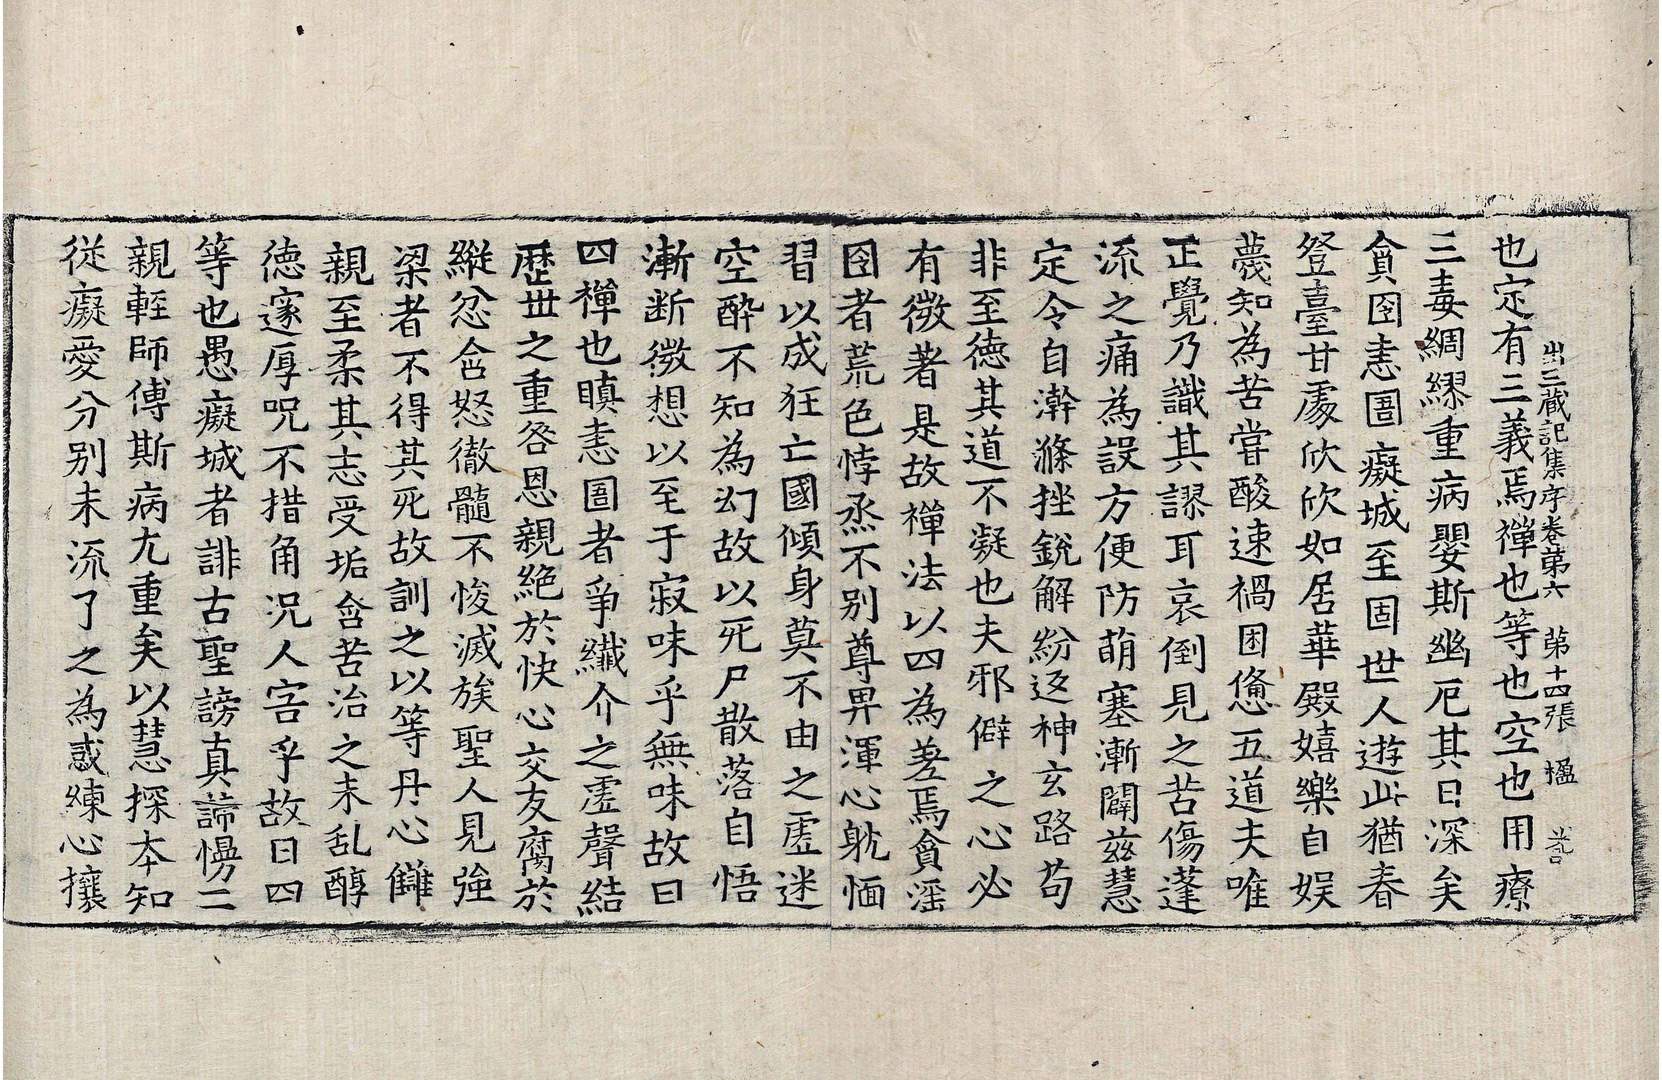 也定有三義焉禪也等也空也用療
出三藏記集序卷第六 第十四張 楹
三毒綢繆重病嬰斯幽厄其日深矣
貪囹恚圄癡城至固世人遊此猶春
登臺甘處欣欣如居華殿嬉樂自娛
蔑知為苦嘗酸速禍困憊五道夫唯
正覺乃識其謬耳哀倒見之苦傷蓬
流之痛為設方便防萌塞漸闢茲慧
定令自澣滌挫銳解紛返神玄路苟
非至徳其道不凝也夫邪僻之心必
有微著是故禪法以四為差焉貪滛
囹者荒色悖烝不别尊卑渾心躭愐
習以成狂亡國傾身莫不由之虛迷
空醉不知為幻故以死尸散落自悟
漸断微想以至于寂味乎無味故曰
四禪也瞋恚圄者爭纖介之虛聲結
歷丗之重咎恩親絶於快心交友腐於
縱忿含怒徹髓不悛滅族聖人見強
梁者不得其死故訓之以等丹心讎
親至柔其志受垢含苦治之未乱醇
徳邃厚呪不措角况人害乎故曰四
等也愚癡城者誹古聖謗真諦慢二
親輕師傅斯病尤重矣以慧探本知
從癡愛分别未流了之為惑練心攘